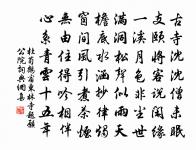 古寺沈沈僧未眠
支頤將客說閒緣
一溪月色非塵世
滿洞松聲似雨天
簷底水涵抄律燭
窗間風引煮茶煙
無由住得吟相伴
心繫青雲十五年
杜荀鶴宿東林寺題願
公院詞典網集